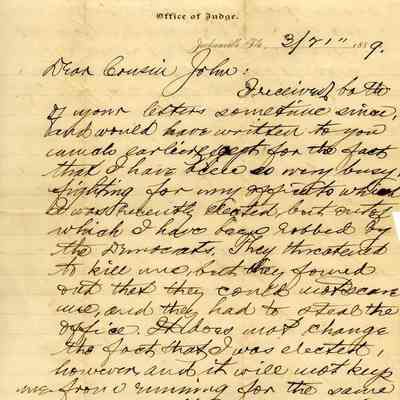 Office of Judge.
Jacksonville, Fla., 3/21" 1889.
Dear Cousin John:
I received both
of your letters sometime since,
and would have written to you
much earlier, but for the fact
that I have been so very busy
fighting for my office to which
I was recently elected, but out of
which I have been robbed by
the Democrats. They threatened
to kill me, but they found
out that they could not scare
me, and they had to steal the
office. It does not change
the fact that I was elected,
however and it will not keep
me from running for the same